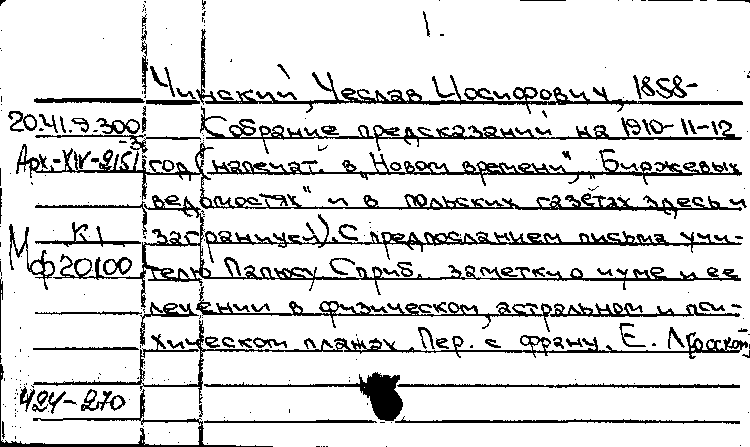 1.
Чинский, Чеслав Иосифович, 1858-
20.41.9.300 Собрание предсказаний на 1910-11-12
Арх.-XIV-2151 год (напечат. в „Новом времени", „Биржевых
ведомостях" и в польских газетах здесь и
К1 заграницей). С предпосланием письма учи-
Мф20100 телю Папюсу С приб. заметки о чуме и ее
лечении в физическом, астральном и пси-
хическом планах. Пер. с франц. Е.
424-270